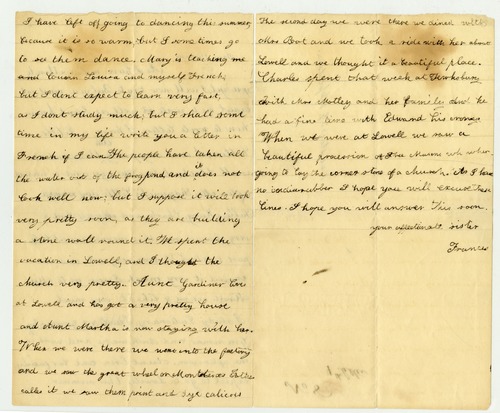 I have left off going to dancing this summer
because it is so warm but I some times go
to see them dance. Mary is teaching me
and Cousin Louisa and myself French,
but I dont expect to learn very fast,
as I dont study much, but I shall some
time in my life write you a letter in
French if I can. The people have taken all
the water out of the frog pond and it does not
look well now; but I suppose it will look
very pretty soon, as they are building
a stone wall round it. We spent the
vacation in Lowell, and I thought the
church very pretty. Aunt Gardiner lives
at Lowell and has got a very pretty house
and Aunt Martha is now staying with her.
When we were there we went into the factory
and we saw the great wheel or
calls it we saw them print and dye calicoes
The second day we were there we dined with
Mrs Boot and we took a ride with her about
Lowell and we thought it a beautiful place.
Charles spent that week at
with Mrs Motley and her family and he
had a fine time with Edward his crony
When we were at Lowell we saw a
beautiful procession of Free Masons who were
going to lay the corner stone of a church. As I have
no I hope you will excuse these
lines. I hope you will answer this soon.
your affectionate sister
Frances